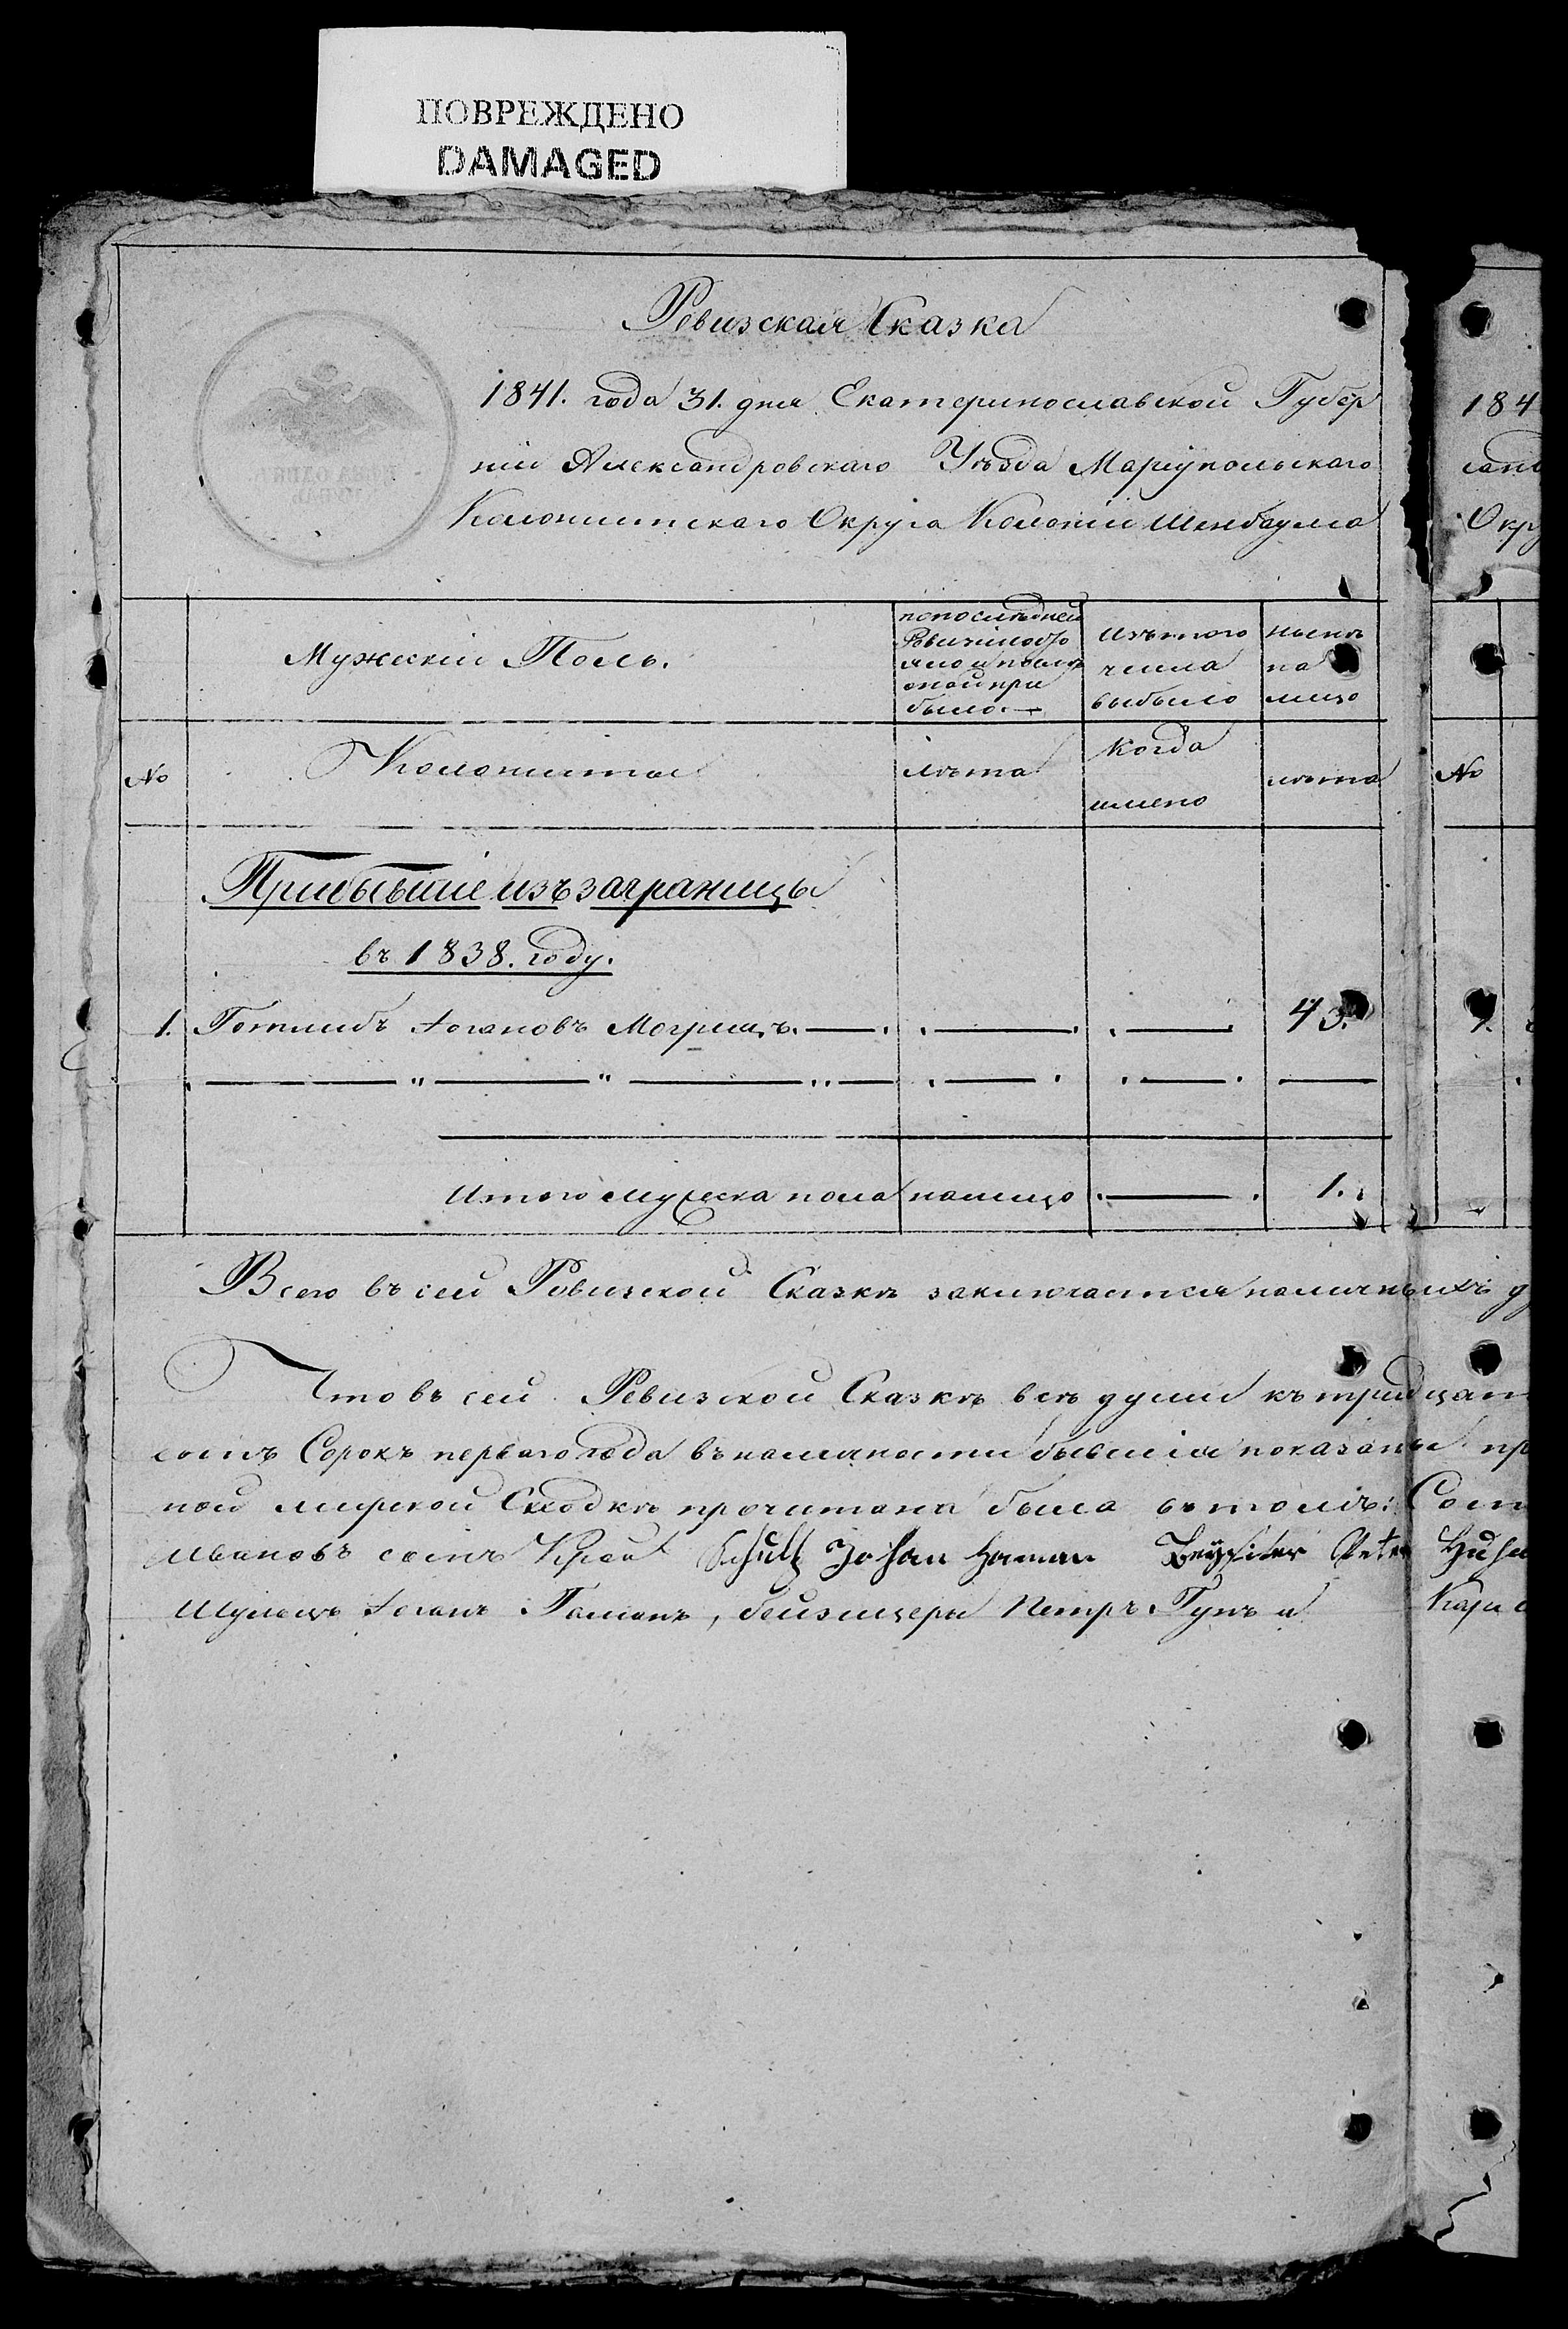 ПОВРЕЖДЕНО
DAMAGED
Ревизская Сказка
1841. года 31. дня Екатеринославской Губер
ніи Александровскаго Уѣзда Маріупольскаго
Колонистскаго Округа Колоніи Шенбаума
Мужескій Полъ.
по послѣдней
Ревизіи состо
яло и послѣ
оной при
было.
Изъ того
числа
выбыло
Нынѣ
на
лицо
№
Колонисты
лѣта
когда
имено
лѣта
Прибывшіе изъ заграницы
въ 1838. году.
1. Готлибъ Іогановъ Могрицъ. 43.
Итого мужеска пола налицо 1.
Всего въ сей Ревизской Сказкѣ заключается наличныхъ
Что въ сей Ревизской Сказкѣ всѣ души къ тридцат
сотъ Сорокъ перваго года въ наличности бывшія показаны пр
ной мирской Сходкѣ прочитана была въ томъ:
Ивановъ сынъ Край Schultz Johan Haman Beysitzer Peter
Шульцъ Іоганъ Гаманъ, бейзицеры Петръ Гупъ и
184
Окру
№
1.